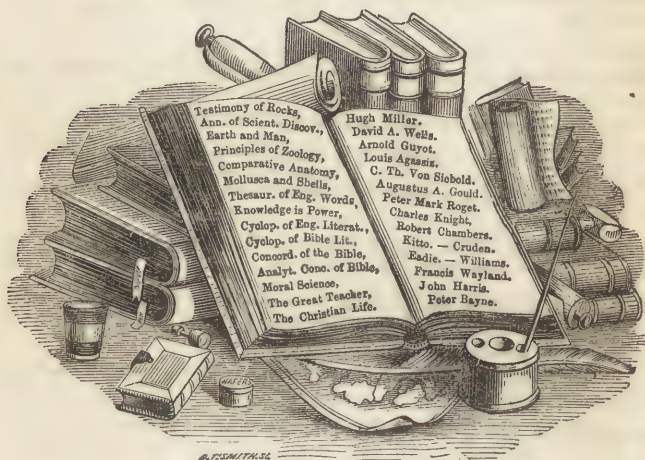 Testimony of Rocks,
Ann. of Scient. Discov.,
Earth and Man,
Principles of Zoology,
Comparative Anatomy,
Mollusca and Shells,
Thesaur. of Eng. Words,
Knowledge is Power,
Cyclop. of Eng. Literat.,
Cyclop. of Bible Lit.,
Concord. of the Bible,
Analyt. Conc. of Bible,
Moral Science,
The Great Teacher,
The Christian Life.
Hugh Miller.
David A. Wells.
Arnold Guyot.
Louis Agassiz.
C. Th. Von Siebold.
Augustus A. Gould.
Peter Mark Roget.
Charles Knight.
Robert Chambers.
Kitto. — Cruden.
Eadie. — Williams.
Francis Wayland.
John Harris.
Peter Bayne.
WAFERS